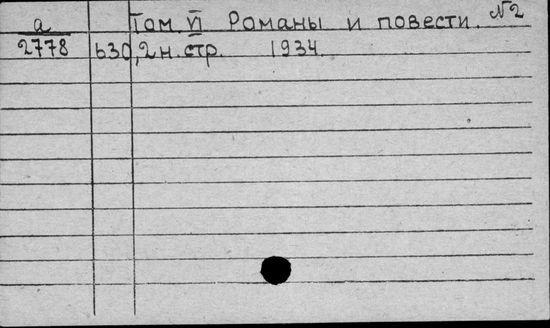 а Том. VI Романы и повести. №2
2778 630, 2 н. стр. 1934.